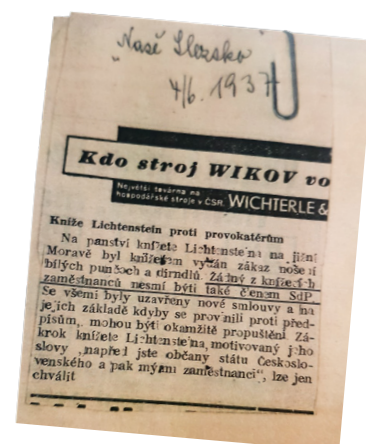 „Naše Slezsko"
4/6. 1937
Kdo stroj WIKOV vo
Největší továrna na
hospodářské stroje v ČSR. WICHTERLE &
Kníže Lichtenstein proti provokatérům
Na panství knížete Lichtensteina na jižní
Moravě byl knížetem vydán zákaz nošení
bílých punčoch a dirndlů. Žádný z knížecích
zaměstnanců nesmí býti také členem SdP.
Se všemi byly uzavřeny nové smlouvy a na
jejich základě kdyby se provinili proti před-
pisům, mohou býti okamžitě propuštěni. Zá-
krok knížete Lichtensteina, motivovaný jeho
slovy „napřed jste občany státu Českoslo-
venského a pak mými zaměstnanci", lze jen
chválit